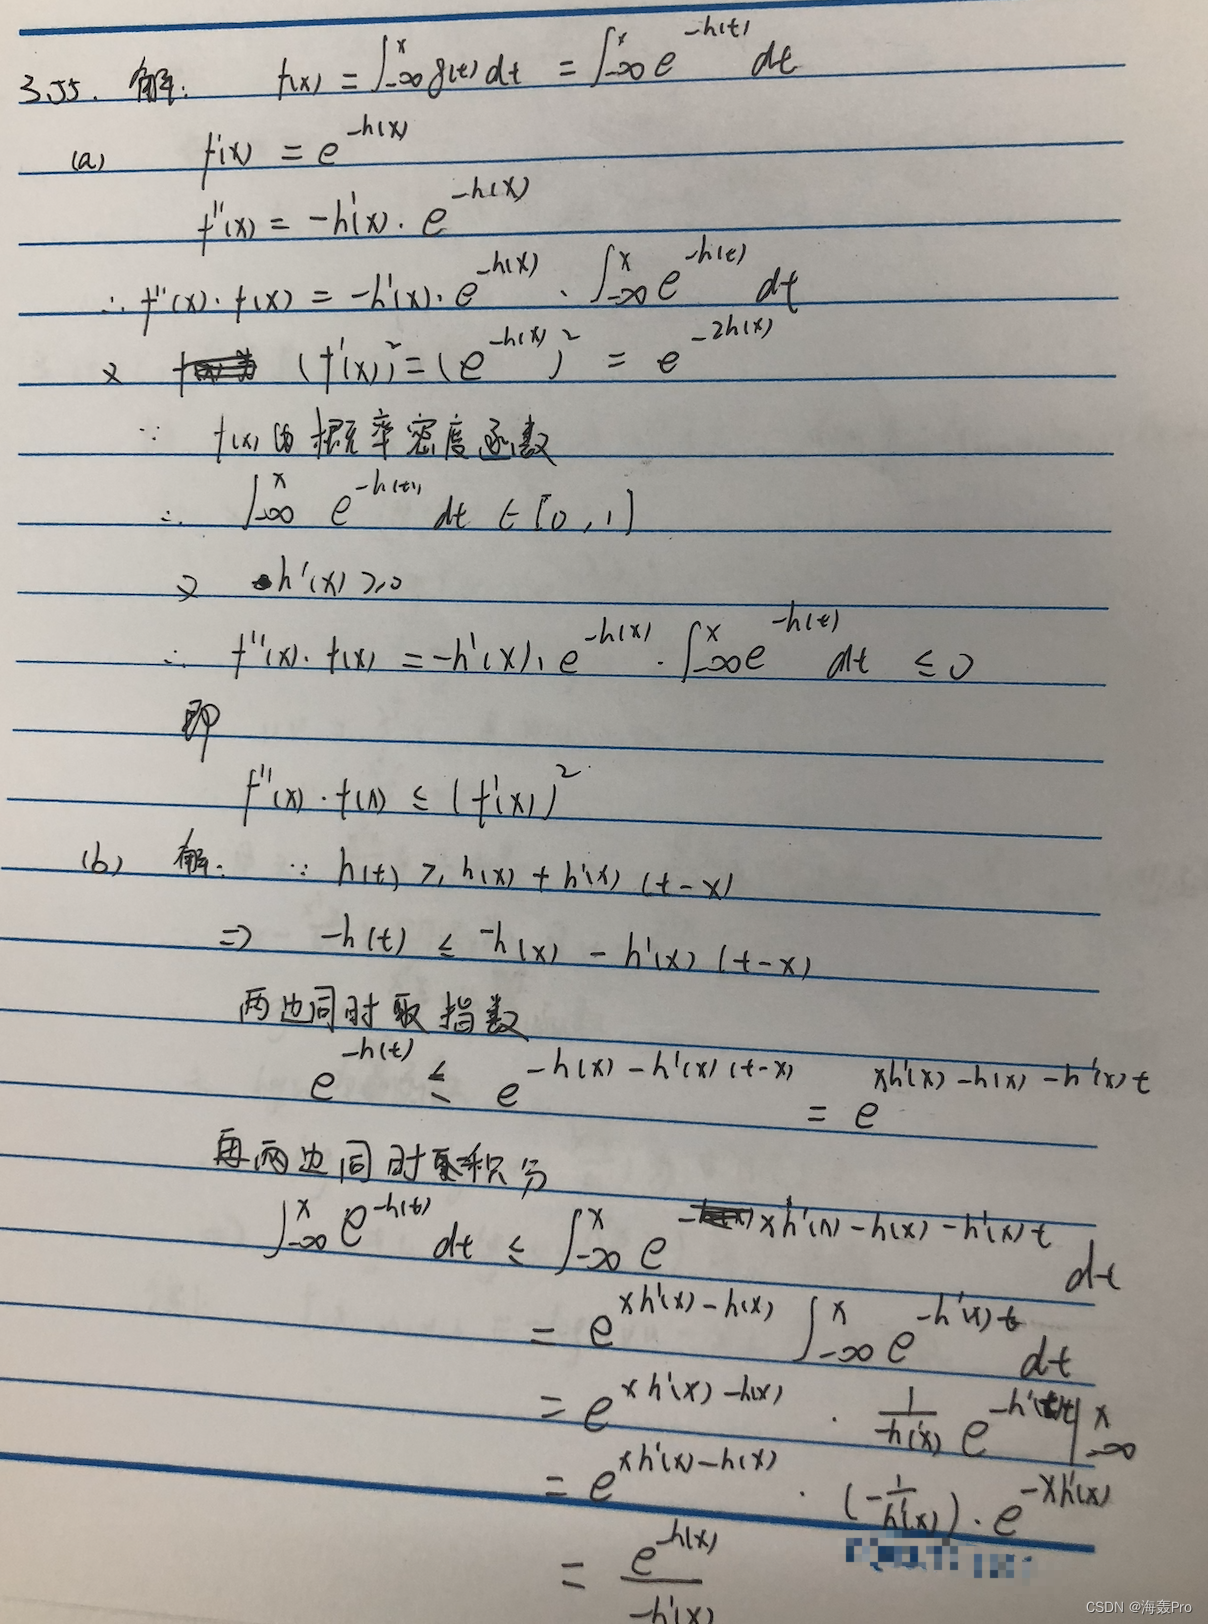 3.55. 解: f(x) = ∫_{-∞}^{x} g(t) dt = ∫_{-∞}^{x} e^{-h(t)} dt
(a) f'(x) = e^{-h(x)}
f''(x) = -h'(x) · e^{-h(x)}
∴ f''(x) · f(x) = -h'(x) · e^{-h(x)} · ∫_{-∞}^{x} e^{-h(t)} dt
又 (f'(x))^2 = (e^{-h(x)})^2 = e^{-2h(x)}
∵ f(x) 的概率密度函数
∴ ∫_{-∞}^{x} e^{-h(t)} dt ∈ [0, 1]
又 h'(x) ≥ 0
∴ f''(x) · f(x) = -h'(x) · e^{-h(x)} · ∫_{-∞}^{x} e^{-h(t)} dt ≤ 0
即
f''(x) · f(x) ≤ (f'(x))^2
(b) 解: ∵ h(t) ≥ h(x) + h'(x) (t-x)
⇒ -h(t) ≤ -h(x) - h'(x) (t-x)
两边同时取指数
e^{-h(t)} ≤ e^{-h(x) - h'(x) (t-x)} = e^{xh'(x) - h(x) - h'(x) t}
再两边同时积分
∫_{-∞}^{x} e^{-h(t)} dt ≤ ∫_{-∞}^{x} e^{xh'(x) - h(x) - h'(x) t} dt
= e^{xh'(x) - h(x)} ∫_{-∞}^{x} e^{-h'(x) t} dt
= e^{xh'(x) - h(x)} · \frac{1}{-h'(x)} e^{-h'(x)t} |_{-∞}^{x}
= e^{xh'(x) - h(x)} · (-\frac{1}{h'(x)}) · e^{-xh'(x)}
= \frac{e^{-h(x)}}{-h'(x)}
CSDN @海轰Pro